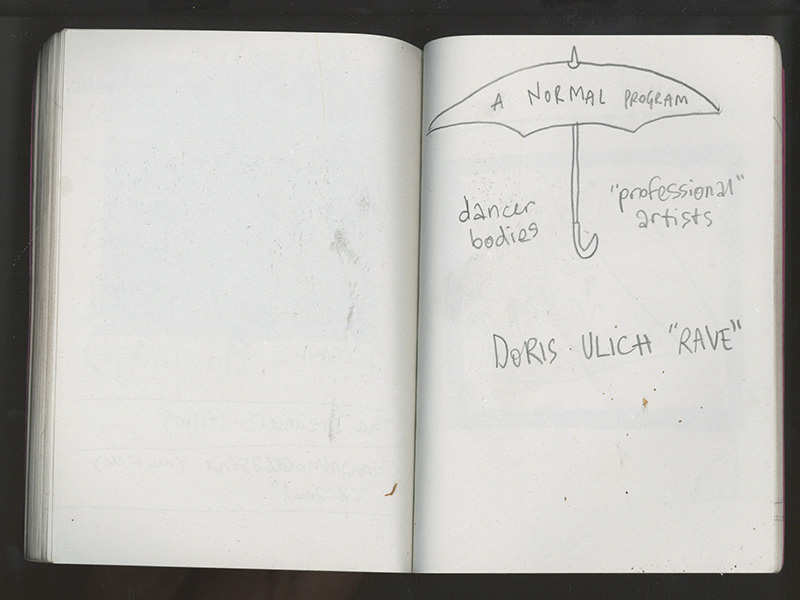 A NORMAL PROGRAM
dancer
bodies
"professional"
artists
DORIS ULICH "RAVE"